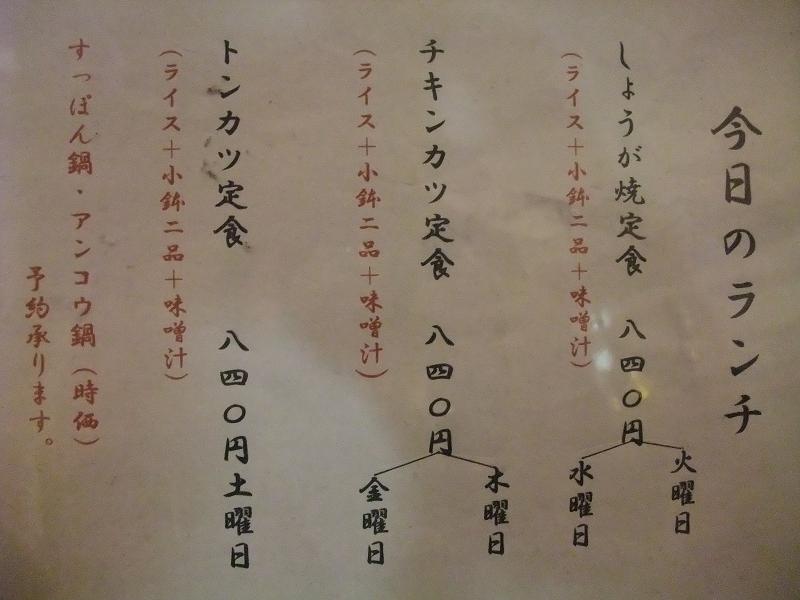 今日のランチ
しょうが焼定食 八四〇円
火曜日
水曜日
(ライス+小鉢二品+味噌汁)
チキンカツ定食 八四〇円
木曜日
金曜日
(ライス+小鉢二品+味噌汁)
トンカツ定食 八四〇円土曜日
(ライス+小鉢二品+味噌汁)
すっぽん鍋・アンコウ鍋(時価)
予約承ります。